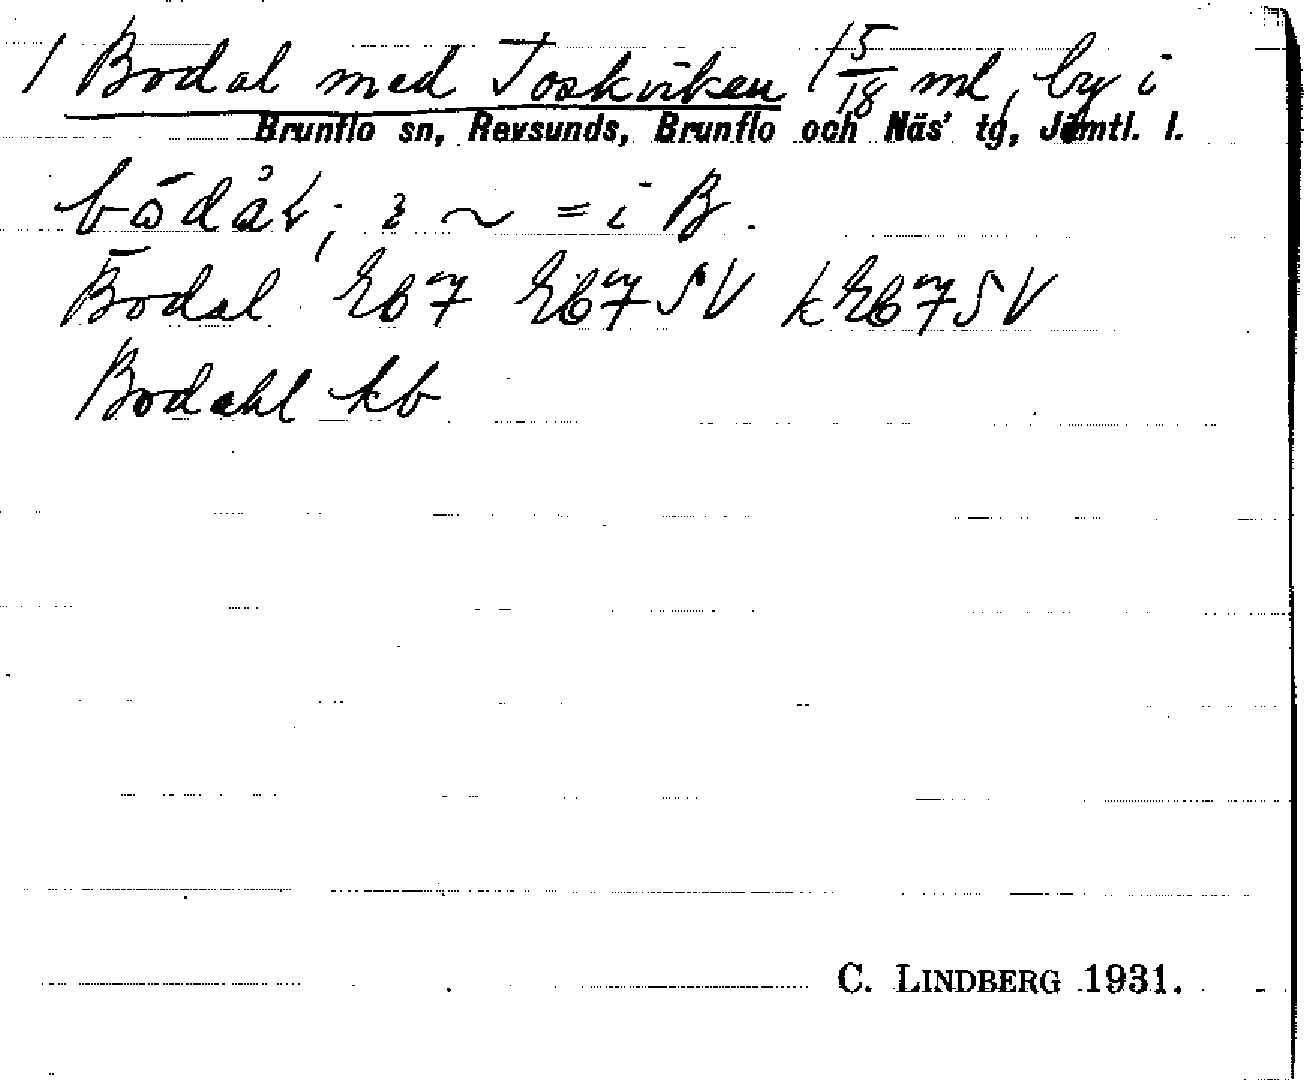 1 Bodal med Toskviken 1 5/18 ml, by i
Brunflo sn, Revsunds, Brunflo och Näs' tg, Jämtl. l.
= i B.
Bodal Eb 7 Eb 7 SV k Eb 7 SV
Bodahl kb
C. LINDBERG 1931.